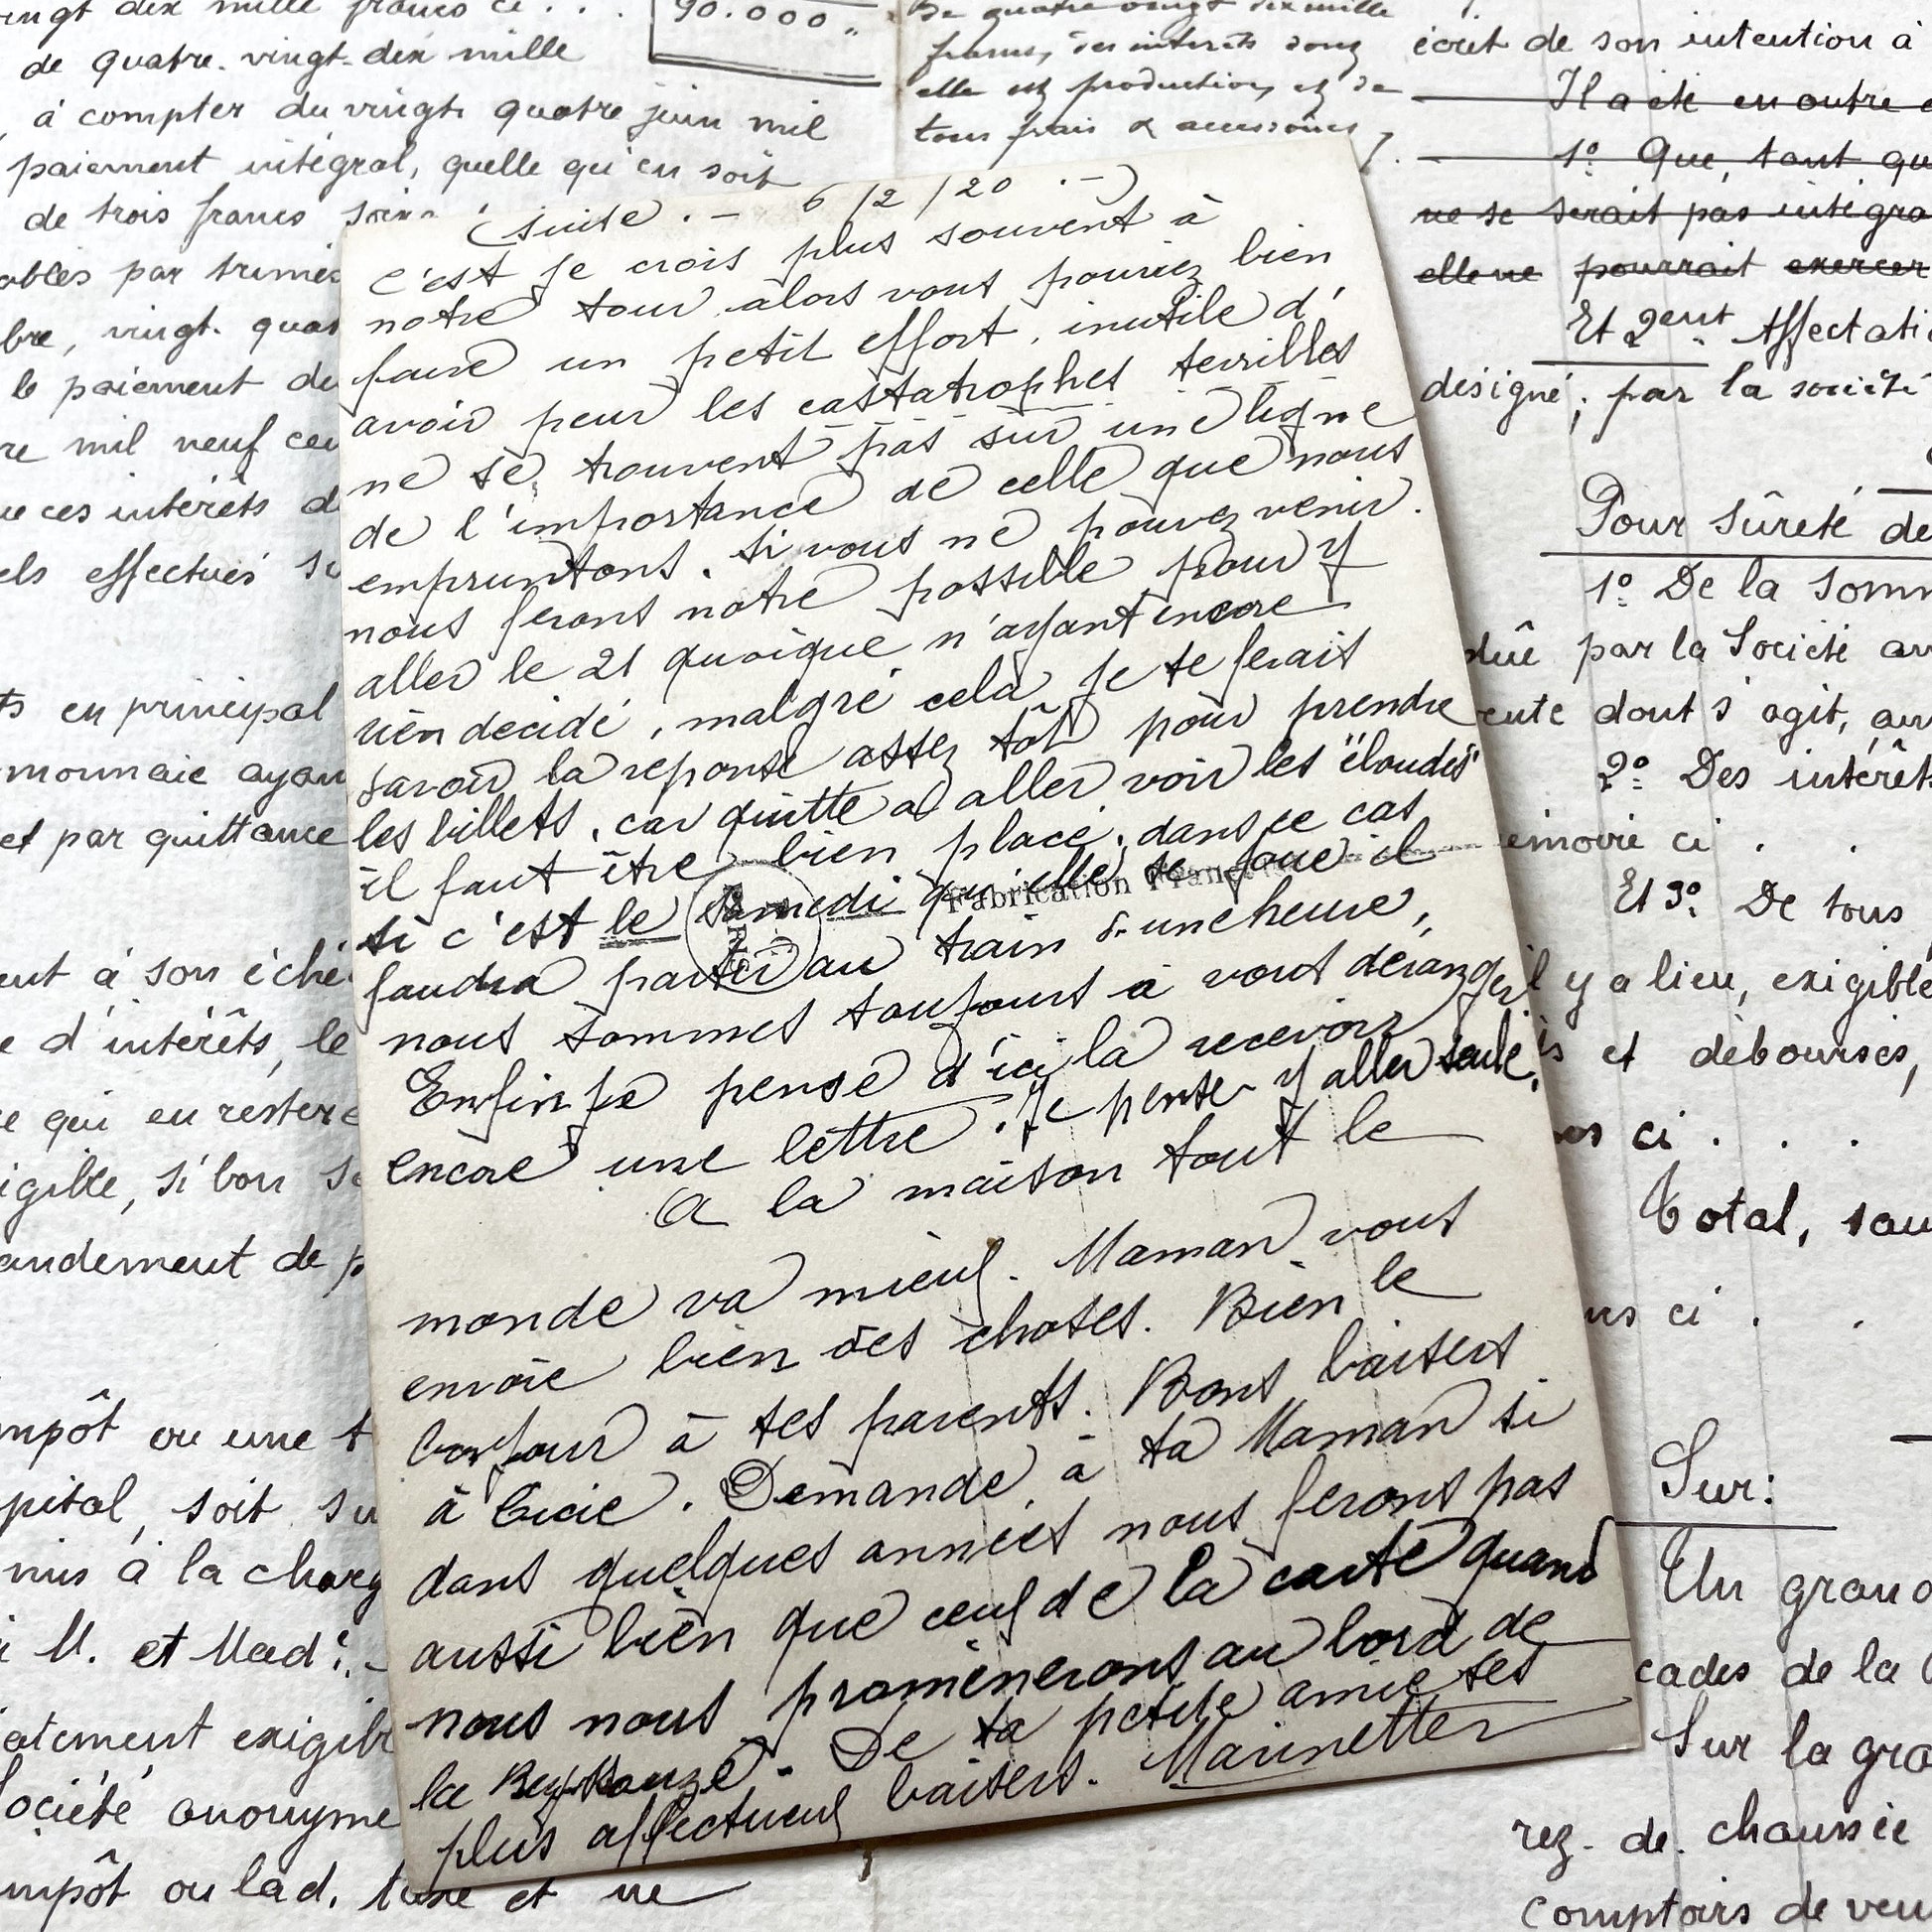 (suite .– 6/2/20 .–)
c'est je crois plus souvent à
notre tour, alors vous pouriez bien
faire un petit effort, inutile d'
avoir peur les castatrophes terribles
ne se trouvent pas sur une ligne
de l'importance de celle que nous
empruntons. Si vous ne pouvez venir.
nous ferons notre possible pour y
aller le 21 quoique n'ayant encore
rien decidé, malgré cela, je te ferait
savoir la reponse assez tôt pour prendre
les billets, car quitte a aller voir les "
il faut être bien placé, dans ce cas
si c'est le samedi qu'elle se joue il
Fabrication Française
faudra partir au train d'une heure,
nous sommes toujours à vous déranger
Enfin je pense d'ici là recevoir
encore une lettre. Je pense y aller seule.
A la maison tout le
monde va mieux. Maman vous
envoie bien des choses. Bien le
bonjour à tes parents. Bons baisers
à Lucie. Demande à ta Maman si
dans quelques années nous ferons pas
aussi bien que ceux de la carte quand
nous nous promènerons au bord de
la Reyssouze. De ta petite amie ses
plus affectueux baisers. Marinette
vingt dix mille francs ci . . .
90.000 "
de quatre-vingt-dix mille
à compter du vingt quatre juin mil
paiement intégral, quelle qu'en soit
de trois francs
ables par trimes
bre, vingt-quat
le paiement de
re mil neuf cen
ue ces intérêts d
els effectués su
ts en principal
monnaie ayan
et par quittance
ent à son éché
e d'intérêts, le
e qui en restera
igible, si bon se
andement de p
mpôt ou une t
pital, soit su
mis à la charg
M. et Mad
iatement exigibl
Société anonyme
mpôt ou lad. taxe et ne
De quatre vingt dix mille
francs, des intérêts dont
elle est production, et de
tous frais & accessoires
écrit de son intention à
Il a été en outre
1º Que, tant qu
ne se serait pas intégra
elle ne pourrait exercer
Et 2ent Affectati
désigné, par la société
Pour sûreté de
1º De la Somm
dûe par la Société
vente dont s'agit, au
2º Des intérêts
émoire ci . .
Et 3º De tous
il y a lieu, exigible
is et débourses,
ci . . .
Total, sau
ci . .
Sur:
Un grand
cades de la
Sur la gra
rez-de-chaussée
comptoirs de ven